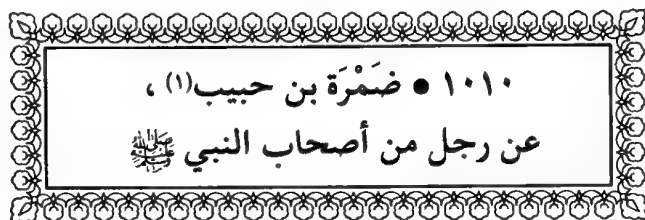 ١٠١٠ ● ضَمْرَة بن حبيب(١) ،
عن رجل من أصحاب النبي ﷺ